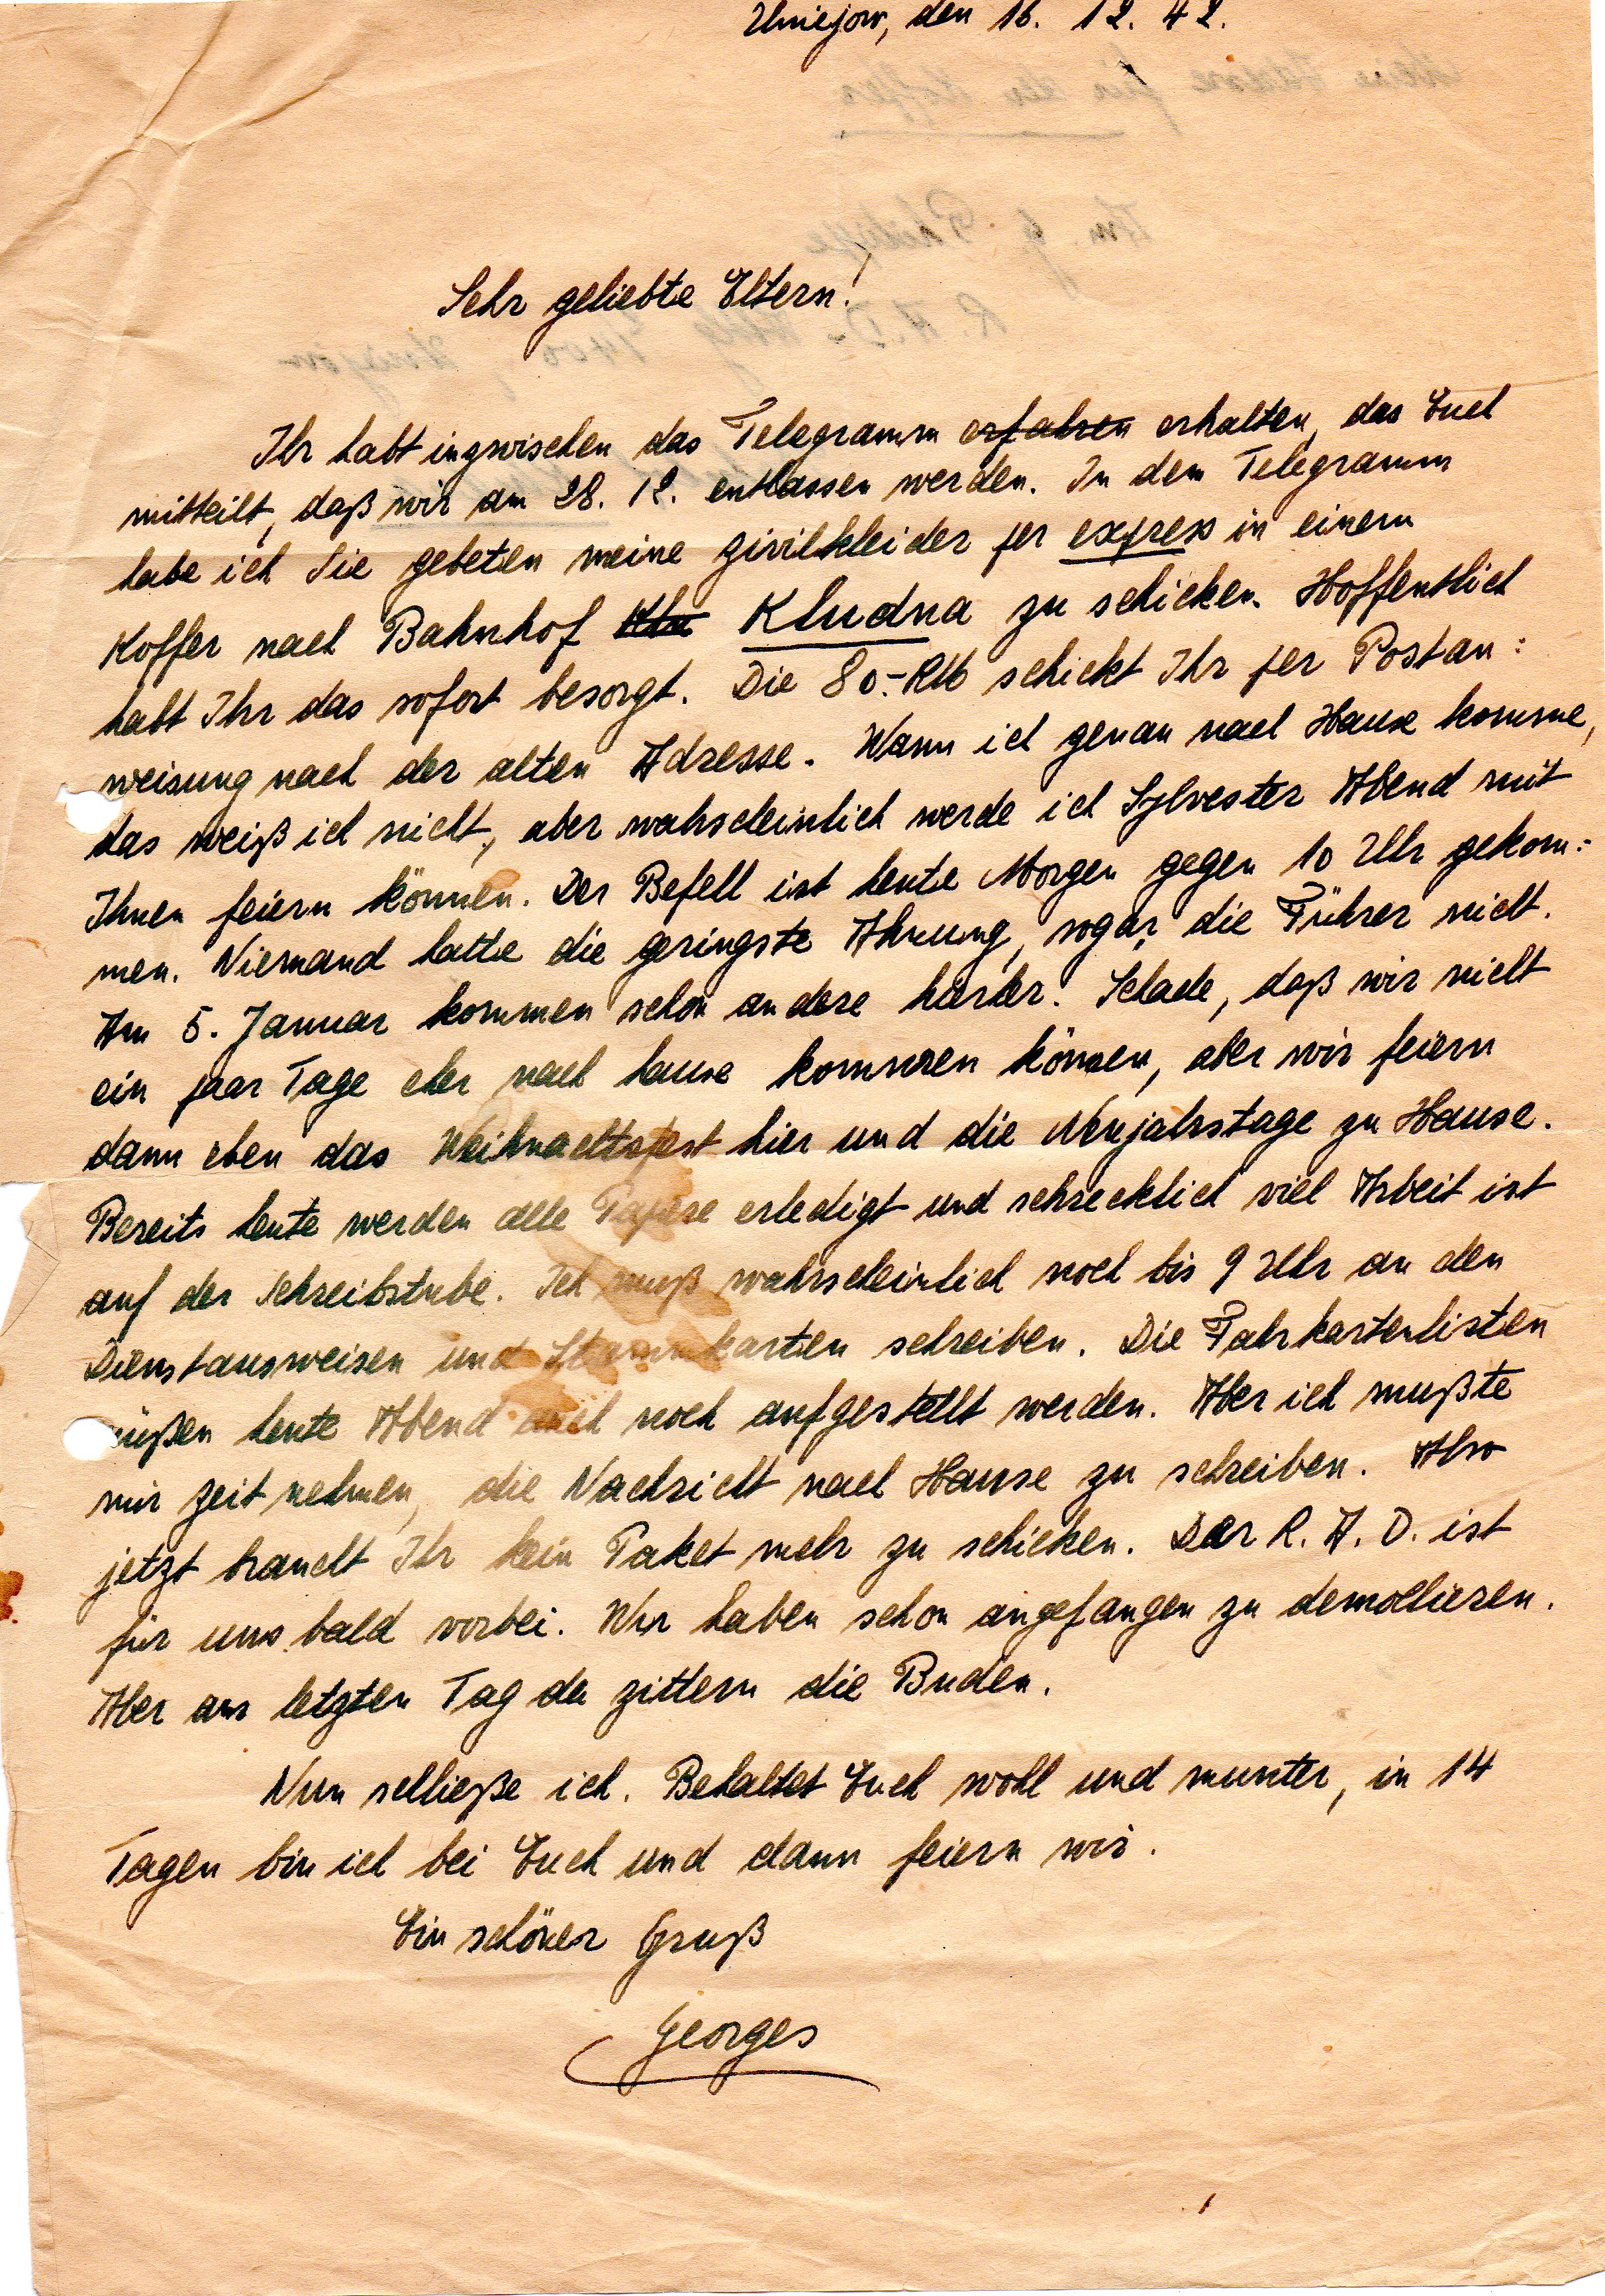 Uniejow, den 16. 12. 42.
Sehr geliebte Eltern!
Ihr habt inzwischen das Telegramm erfahren erhalten, das Euch
mitteilt, daß wir am 28. 12. entlassen werden. In dem Telegramm
habe ich Sie gebeten meine Zivilkleider per expreß in einem
Koffer nach Bahnhof Klu Kludna zu schicken. Hoffentlich
habt Ihr das sofort besorgt. Die 80.- RM schickt Ihr per Postan:
weisung nach der alten Adresse. Wann ich genau nach Hause komme,
das weiß ich nicht, aber wahrscheinlich werde ich Sylvester Abend mit
Ihnen feiern können. Der Befehl ist heute Morgen gegen 10 Uhr gekom:
men. Niemand hatte die geringste Ahnung, sogar die Führer nicht.
Am 5. Januar kommen schon andere hierher. Schade, daß wir nicht
ein paar Tage eher nach hause kommen können, aber wir feiern
dann eben das Weihnachtsfest hier und die Neujahrstage zu Hause.
Bereits heute werden alle Papiere erledigt und schrecklich viel Arbeit ist
auf der Schreibstube. Ich muß wahrscheinlich noch bis 9 Uhr an den
Dienstausweisen und Stammkarten schreiben. Die Fahrkartenlisten
müßen heute Abend auch noch aufgestellt werden. Aber ich mußte
mir Zeit nehmen, die Nachricht nach Hause zu schreiben. Also
jetzt braucht Ihr kein Paket mehr zu schicken. Der R. A. D. ist
für uns bald vorbei. Wir haben schon angefangen zu demolieren.
Aber am letzten Tag da zittern die Buden.
Nun schließe ich. Behaltet Euch wohl und munter, in 14
Tagen bin ich bei Euch und dann feiern wir.
Ein schöner Gruß
Georges